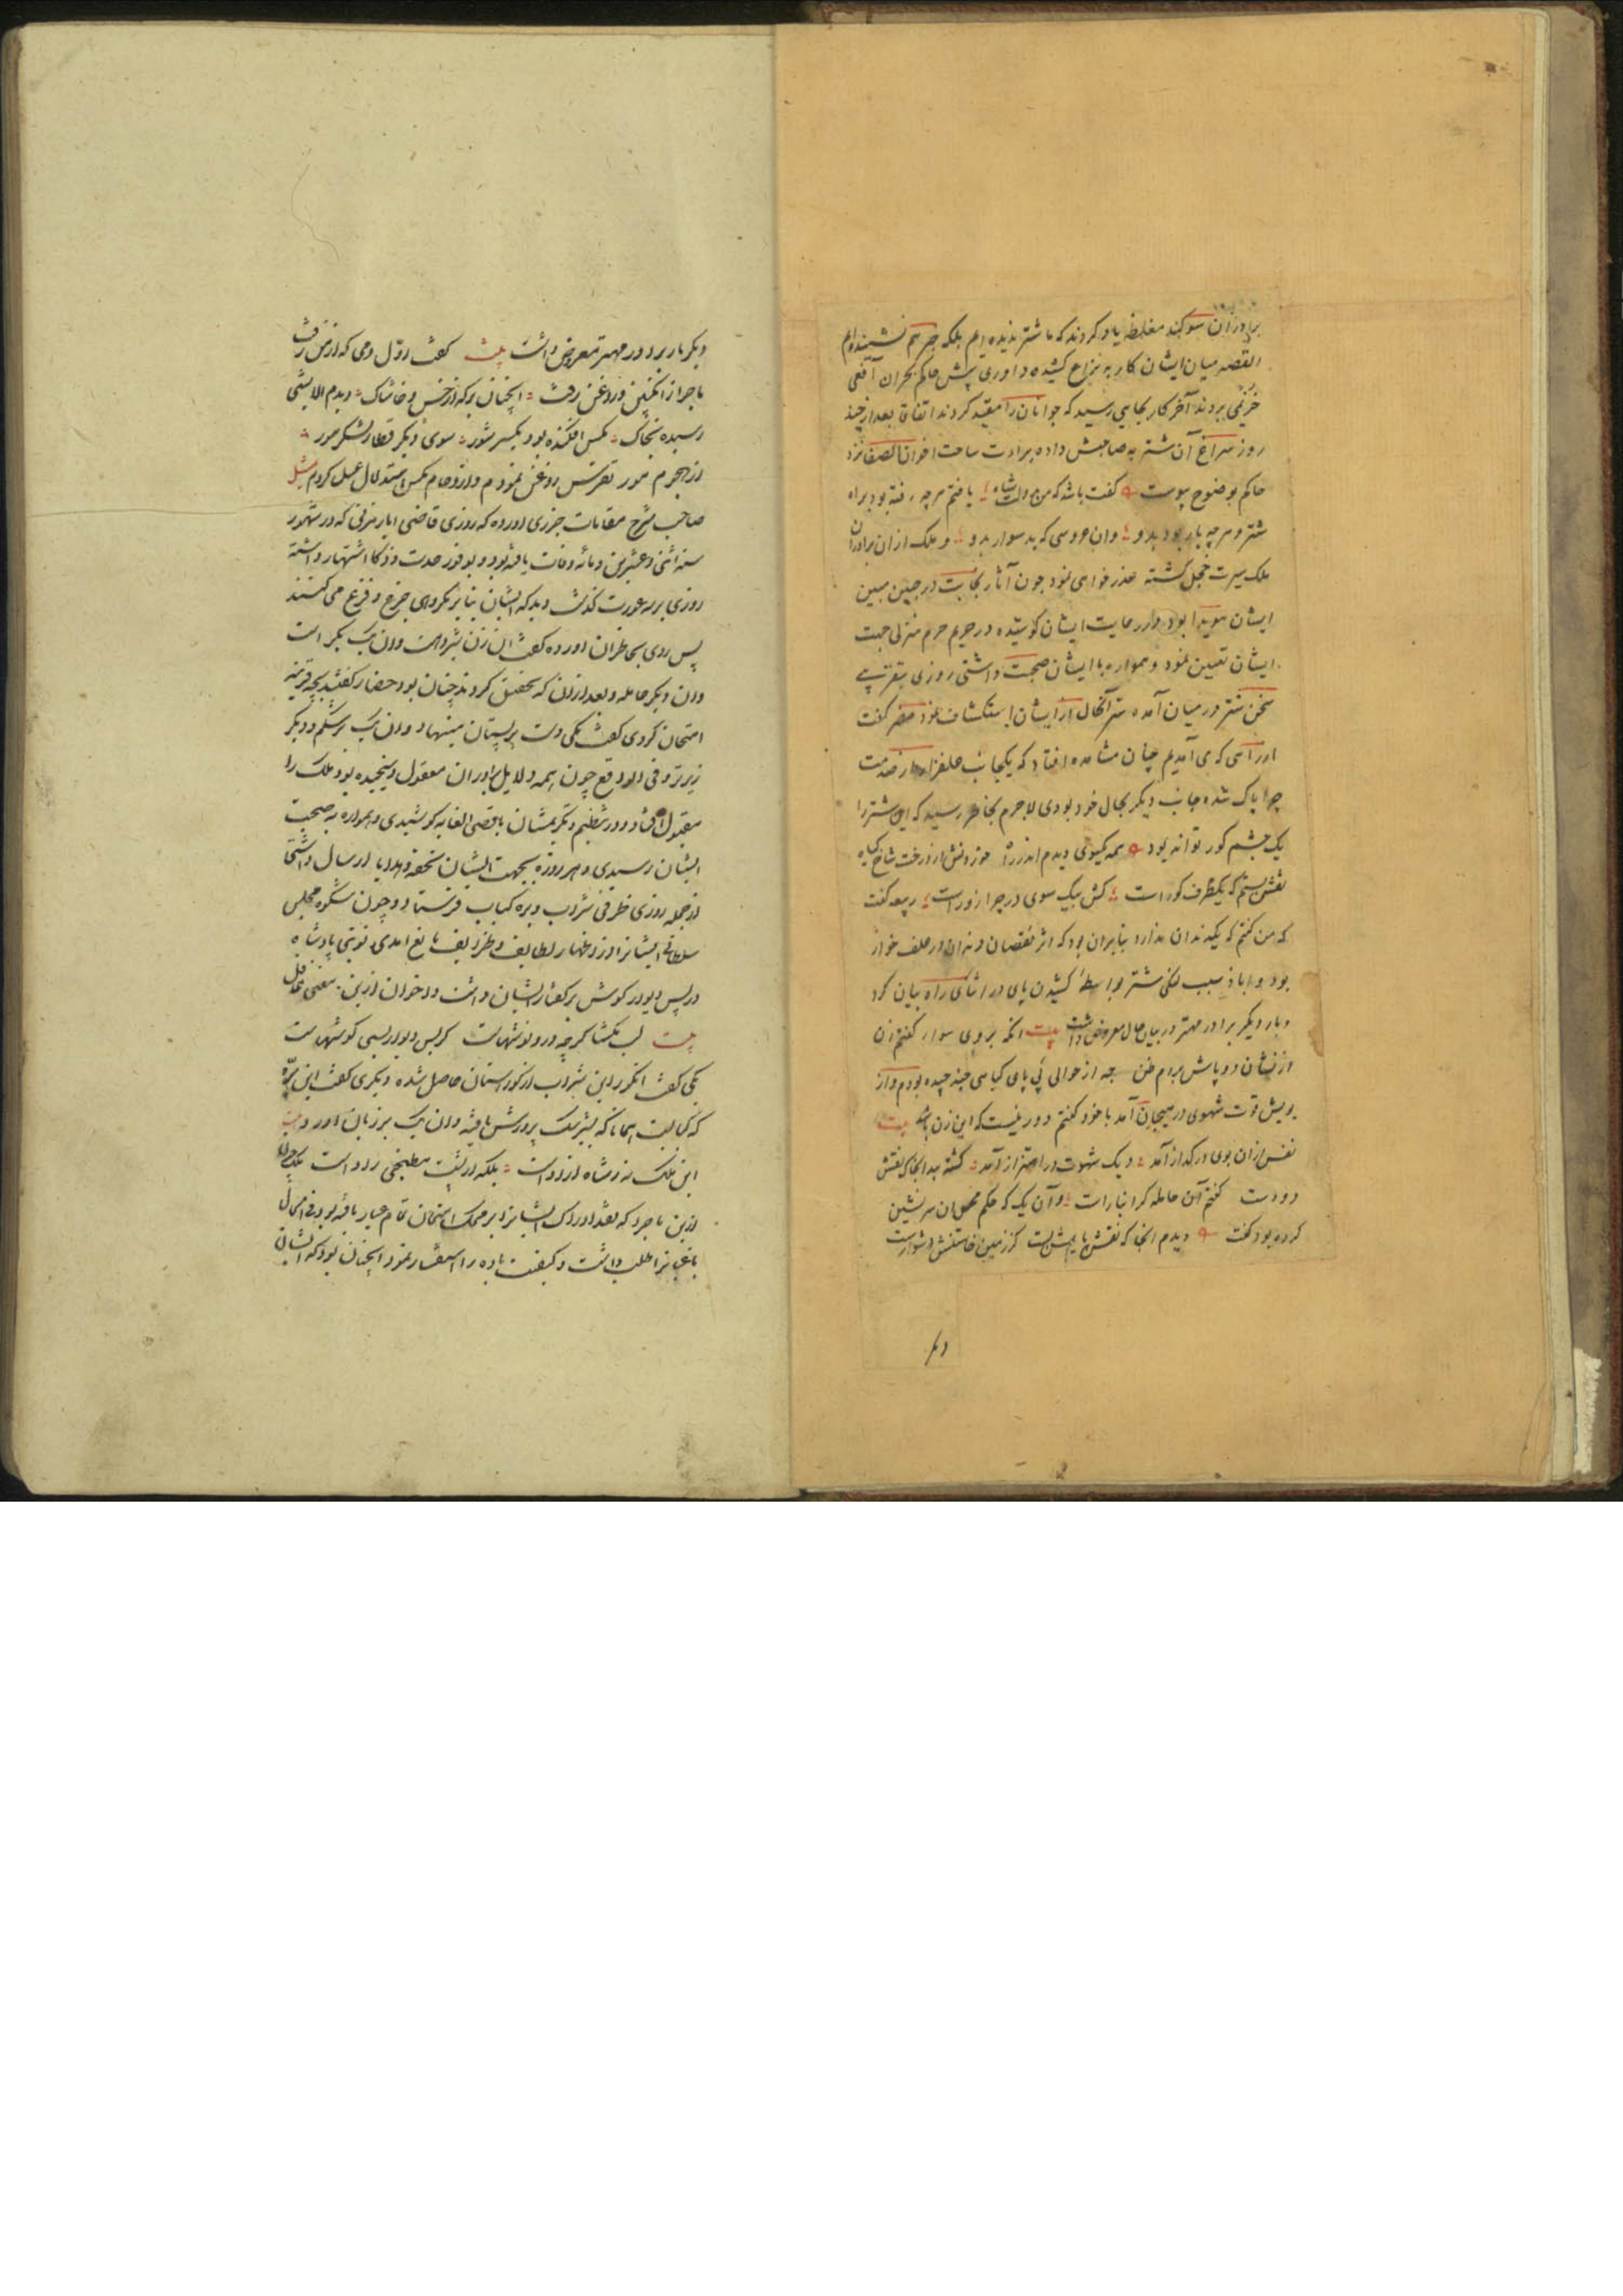 برادران سوکند مغلظ یاد کردند که ما شتر ندیده ایم بلکه جرسم نشنیده ایم
القصه میان ایشان کار به نزاع کشیده داوری پیش حاکم نجران افعی
جرهمی بردند آخر کار بجایی رسید که جوانان را مقید کردند اتفاقا بعد از چند
روز سراغ آن شتر به صاحبش داده برادت ساحت اخوان الصفا نزد
حاکم بوضوح پیوست کفت باشد که من دولت شاه یافتم هرچه رفته بود براه
شتر و هرچه بار بود بدو وان عروسی که بد سوار بدو و ملک ازان برادران
ملک سیرت خجل کشته عذر خواهی نمود چون آثار نجابت در جبین مبین
ایشان هویدا بود در رعایت ایشان کوشیده در حریم حرم منزلی جهت
ایشان تعیین نمود و همواره با ایشان صحبت داشتی روزی بتقریبی
سخن شتر در میان آمده سر آنحال از ایشان استکشاف نمود مضر کفت
در راهی که می آمدیم چنان مشاهده افتاد که یکجانب علفزار
چرا پاک شده جانب دیکر بحال خود بودی لاجرم بخاطر رسید که این شتر را
یک چشم کور تواند بود همه کیوی دیدم اندر راه خوردنش از درخت شاخ کیاه
نقش بستم که یکطرف کور است کش بیک سوی در چرا زور است ربیعه کفت
که من کفتم که یکدندان ندارد بنابران بود که اثر نقصان دندان در علف خوار
بود و ایاد سبب لنکی شتر بواسطه کشیدن پای در اثنای راه بیان کرد
و بار دیکر برادر مهتر در بیان حال معروض داشت بیت انکه بر وی سوار کفتم زن
از نشان دو پاش بردم ظن چه از حوالی پی پای کیاهی چند چیده بودم و از
بویش قوت شهوی در هیجان آمد با خود کفتم دور نیست که این زن باشد بیت
نفس ازان بوی در کداز آمد دیک شهوت در اهتزاز آمد کشته بد انجای نقش
دو دست کفتم آن حامله کرانبار است و آن یک که حکم بر نشین
کرده بود کفت دیدم انجا که نقش پایش بست کز زمین خاستنش دشوار است
دیکر
دیکر بار برادر مهتر معروض داشت بیت کفت اول دمی که از من رفت
ماجرا از انکبین و روغن رفت انچنان بد که از خس و خاشاک دیدم آلایشی
رسیده بخاک مکس افکنده بود یکسر شور سوی دیکر قطار لشکر مور
از هجوم مور تفرس روغن نمودم و از ازدحام مکس استدلال عسل کردم مثل
صاحب شرح مقامات حریری آورده که روزی قاضی ایاس مزنی که در شهور
سنه اثنی و عشرین و مائه وفات یافته بود و بوفور حدت و ذکا اشتهار داشته
روزی بر سه عورت کذشت دید که ایشان بنابر مکروهی جزع و فزع می کنند
پس روی بحاضران آورده کفت این زن شیردهست وان یک بکر است
وان دیکر حامله و بعد ازان که تحقیق کردند چنان بود حضار کفتند بچه قرینه
امتحان کردی کفت یکی دست بر پستان مینهاد و ان یک بر شکم و دیکر
زیرتر و فی الواقع چون همه دلایل برادران معقول و سنجیده بود ملک را
مقبول افتاد و در تعظیم و تکریمشان باقصی الغایه کوشیدی و همواره بصحبت
ایشان رسیدی و هر روزه بجهت ایشان تحفه و هدایا ارسال داشتی
از جمله روزی ظرفی شراب و بره کباب فرستاد و چون شکوه مجلس
سلطانی ایشانرا از اظهار لطایف و ظرایف مانع آمدی نوبتی پادشاه
در پس دیوار کوش بر کفتار ایشان داشت و اخوان ازین معنی غافل
بیت لب مکشا کرچه درو نوشهاست کز پس دیوار بسی کوشهاست
یکی کفت انکور این شراب از کورستان حاصل شده دیکری کفت این بره
که کبابست همانا که بشیر سک پرورش یافته وان یک بر زبان آورد بیت
این ملک نه ز شاه آزاد است بلکه از پشت مطبخی زاد است ملک را
ازین ماجرا که نقد ادراک ایشانرا بر محک امتحان تمام عیار یافته بود فی الحال
باغبانرا طلب داشت و کیفیت باده را استفسار نمود انچنان بود که ایشان